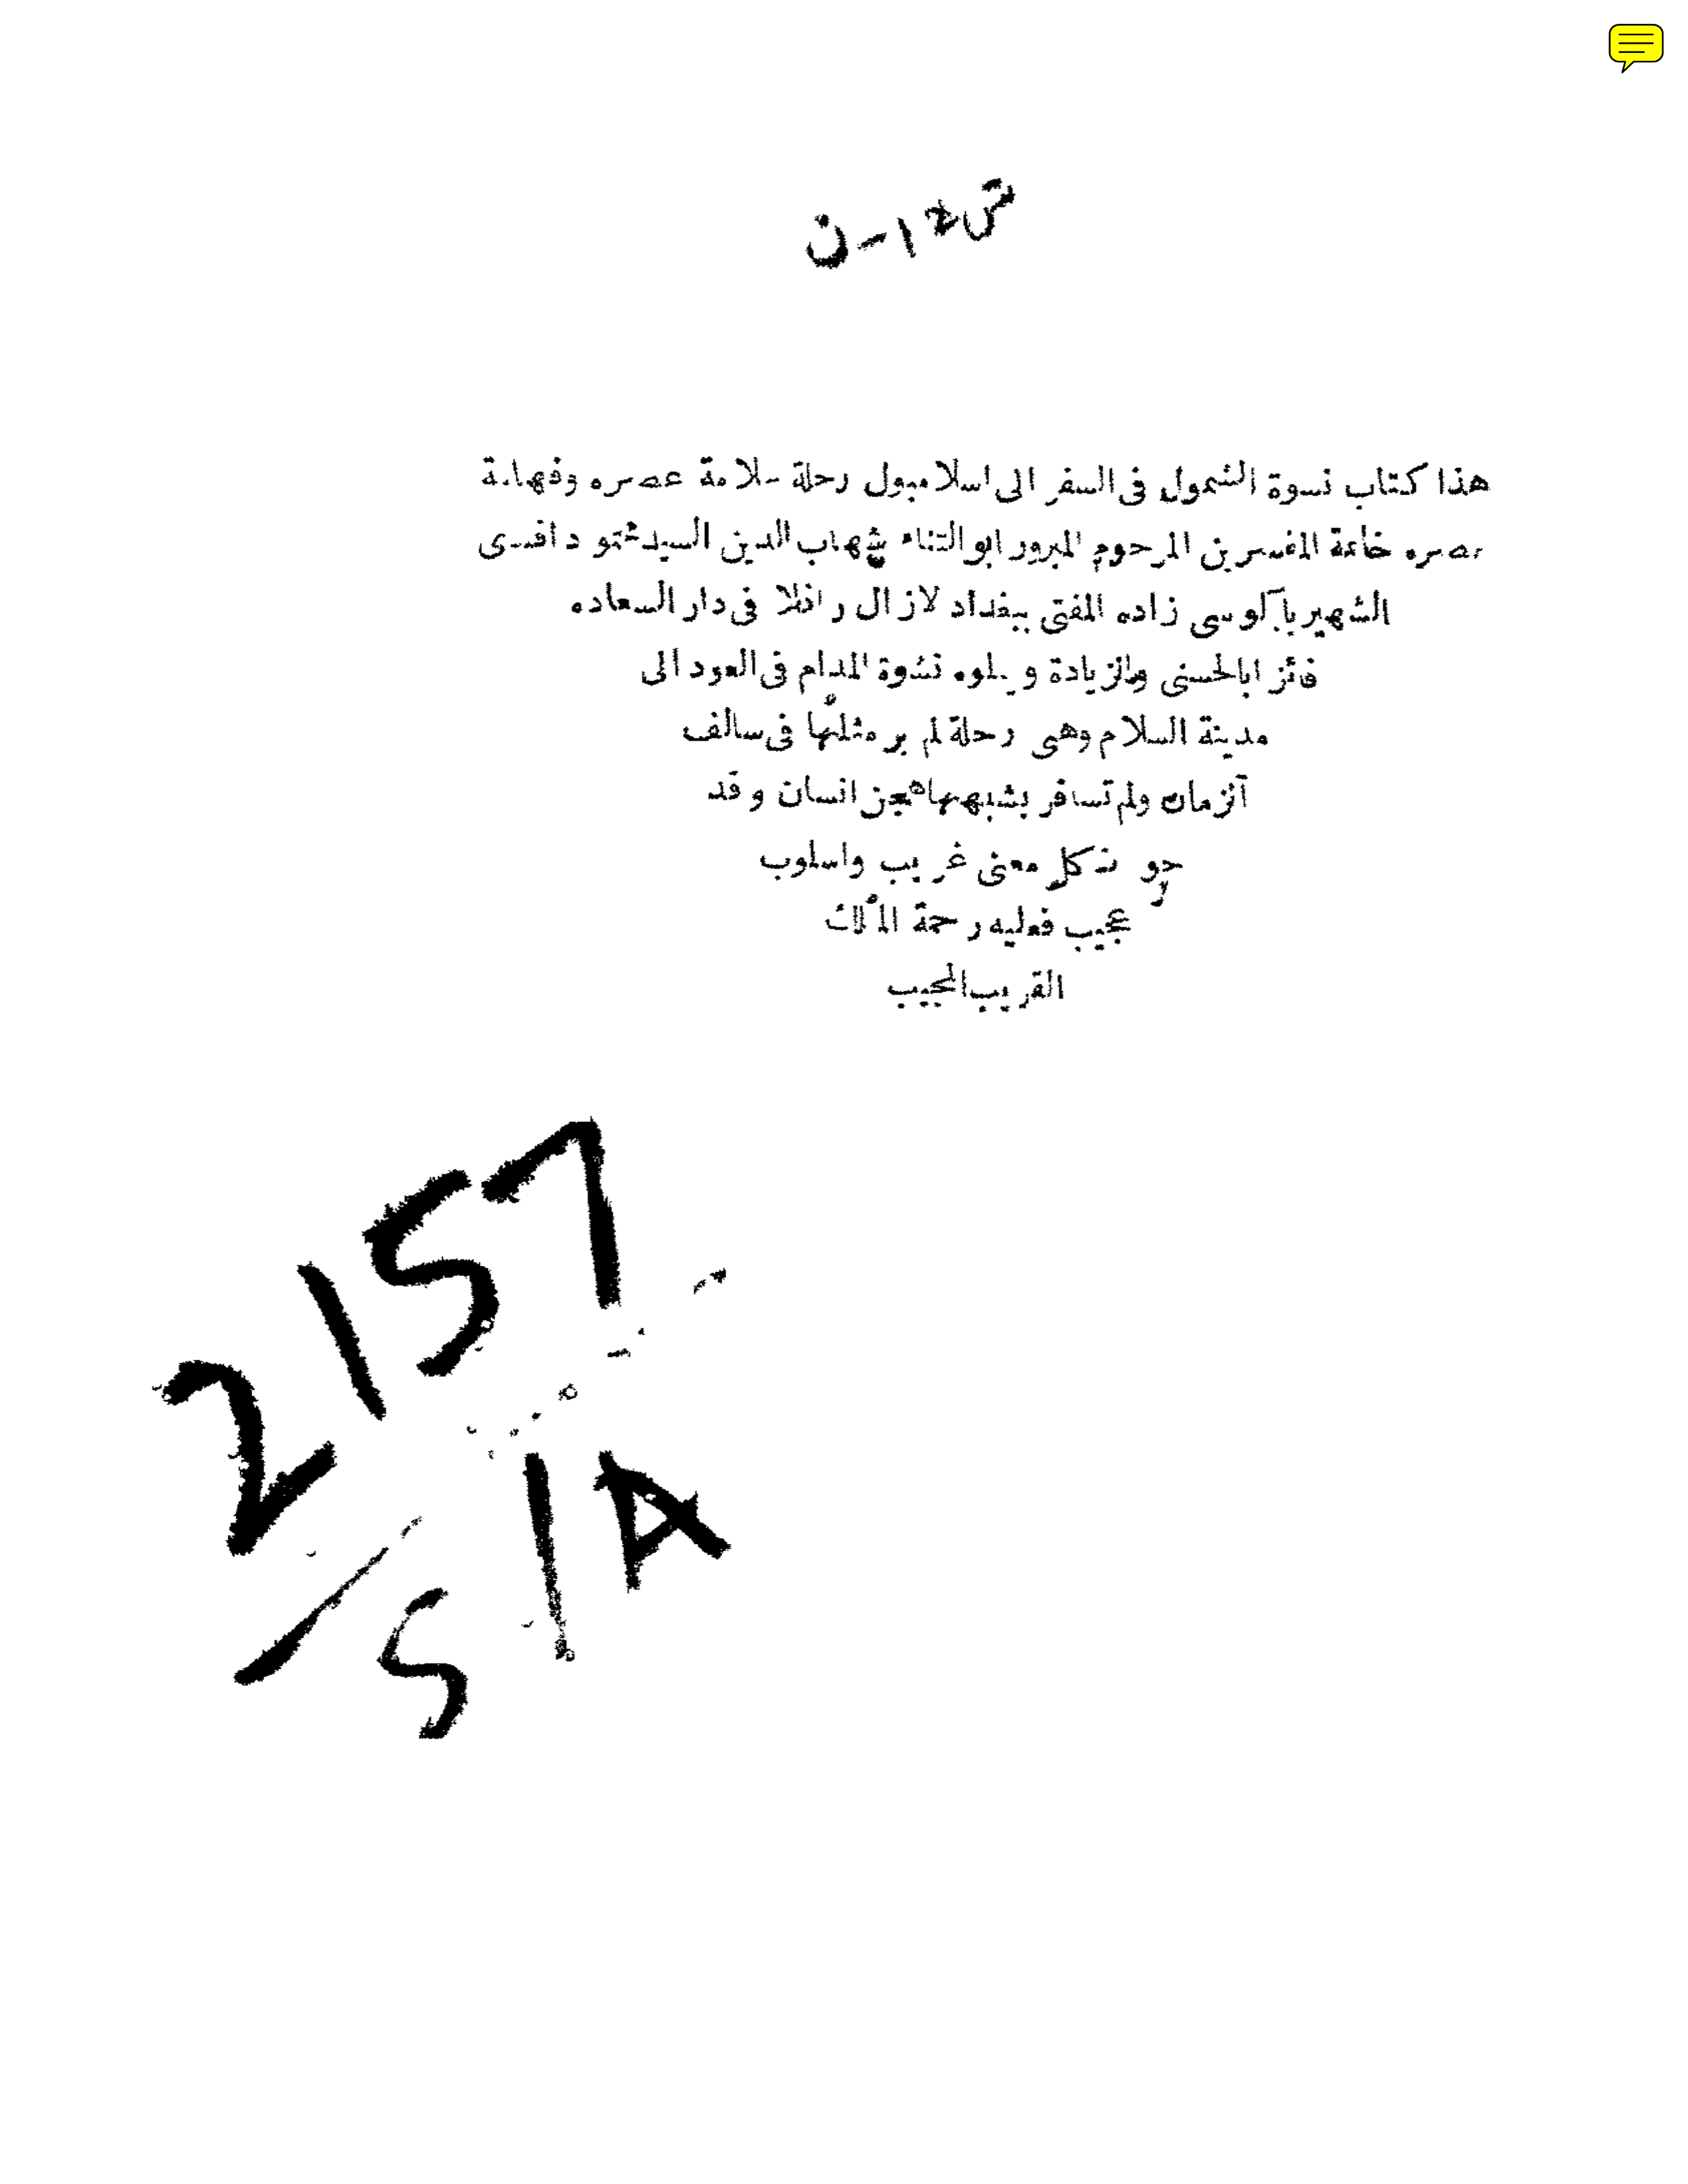 هذا كتاب نسوة الشمول فى السفر الى اسلامبول رحلة علامة عصره وفهامة
عصره خاتمة المفسرين المرحوم المبرور ابو الثناء شهاب الدين السيد محمود افندى
الشهير بآلوسى زاده المفتى ببغداد لازال رافلا فى دار السعاده
فائزا بالحسنى والزيادة ويتلوه نشوة المدام فى العود الى
مدينة السلام وهى رحلة لم ير مثلها فى سالف
الزمان ولم تسافر بشبهها عين انسان وقد
كل معنى غريب واسلوب
عجيب فعليه رحمة الملك
القريب المجيب
2157
51A